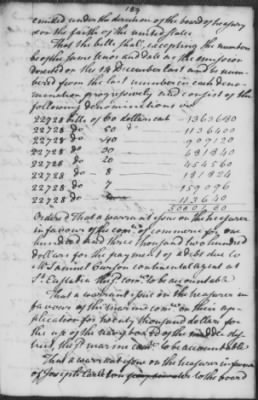 189
emitted under the direction of the board of treasury
on the faith of the united states
That the bills shall, excepting the number
be of the same tenor and date as the emission
directed on the 14 December last and be num
bered from the last number in each deno
mination progressively and consist of the
following denominations viz
22728 bills of 60 dollars each 1363680
22728 do 50 do 1136400
22728 do 40 909120
22728 do 30 681840
22728 do 20 454560
22728 do 8 181824
22728 do 7 159096
22728 do 113640
5000160
Ordered That a warrant issue on the treasurer
in favour of the comee of commerce for one
hundred and three thousand two hundred
dollars for the payment of a debt due to
Mr Samuel Curson continental agent at
St Eustatia the sd comee to be accountable
That a warrant issue on the treasurer in
favour of the marine comee on their ap
plication for twenty thousand dollars for
the use of the navy board of the middle dis
trict, the sd marine comee to be accountable
That a warrant issue on the treasurer in favour
of Joseph Carleton to the board